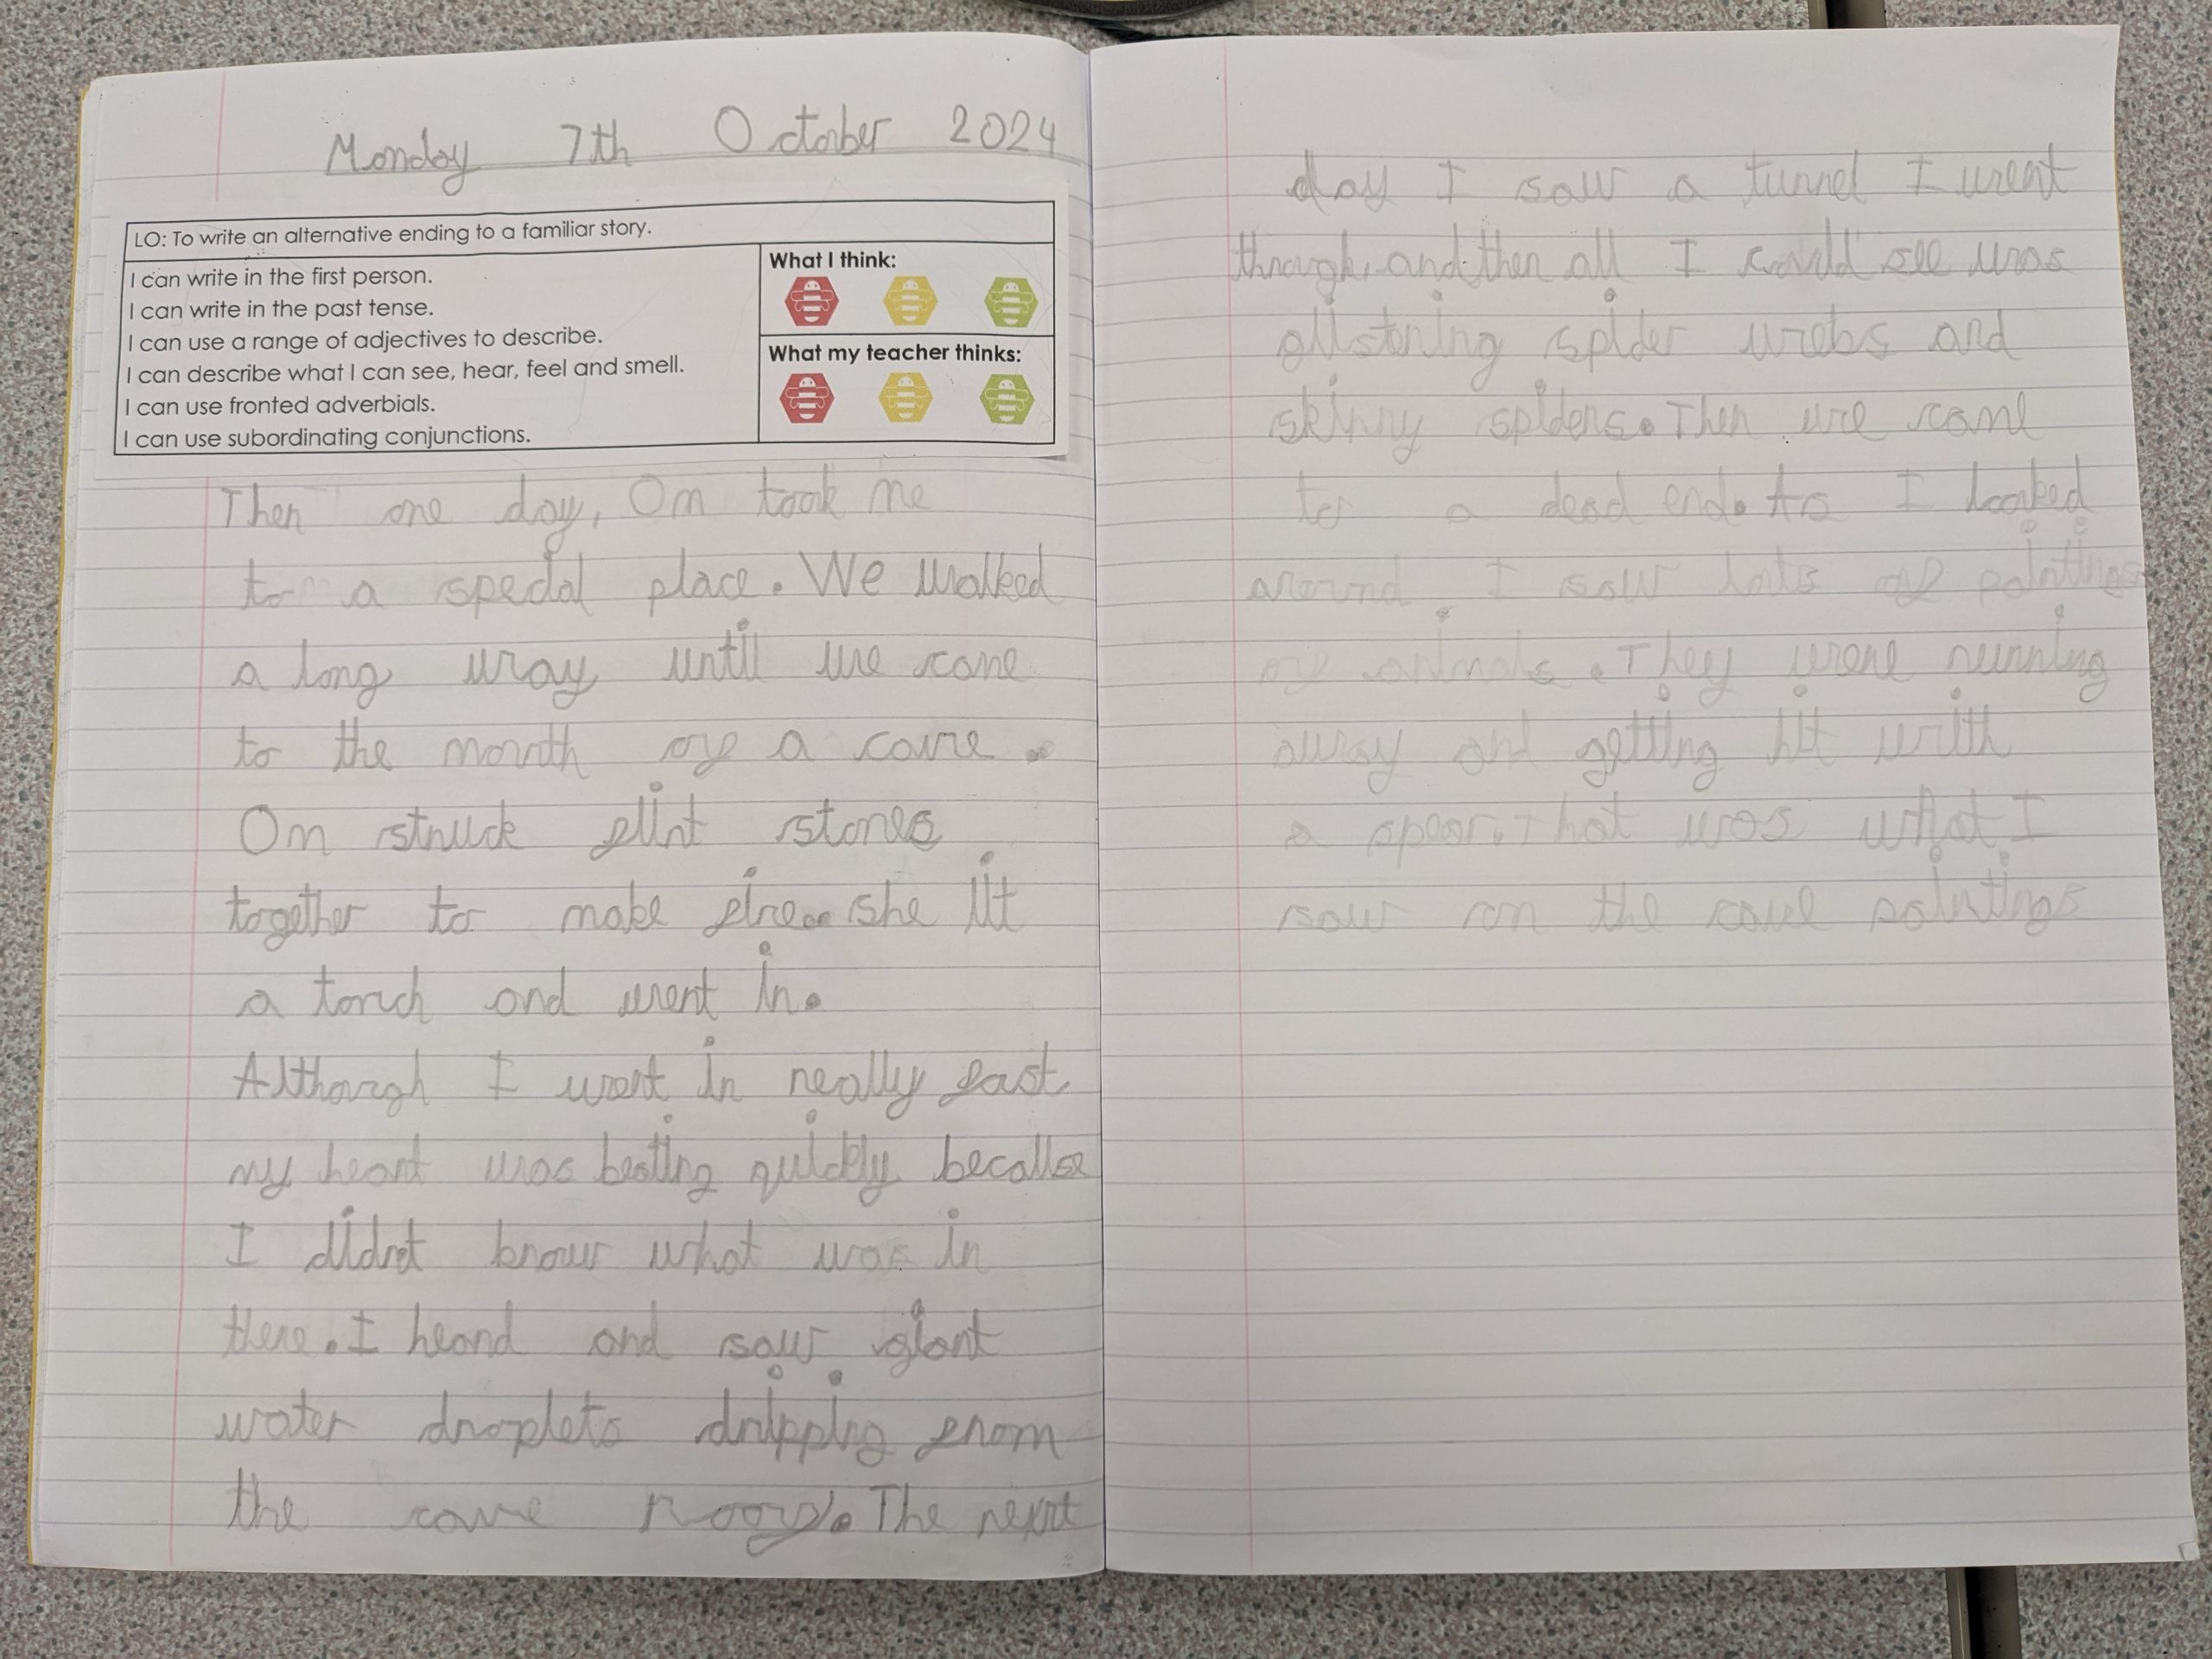 Monday 7th October 2024
LO: To write an alternative ending to a familiar story.
I can write in the first person.
I can write in the past tense.
I can use a range of adjectives to describe.
I can describe what I can see, hear, feel and smell.
I can use fronted adverbials.
I can use subordinating conjunctions.
What I think:
What my teacher thinks:
Then one day, Om took me
to a special place. We walked
a long way until we came
to the mouth of a cave.
Om struck flint stones
together to make fire. she lit
a torch and went in.
Although I went in really fast
my heart was beating quickly because
I didnt know what was in
there. I heard and saw giant
water droplets dripping from
the cave roof. The next
day I saw a tunnel I went
through, and then all I could see was
glistening spider webs and
skinny spiders. Then we came
to a dead end. As I looked
around, I saw lots of paintings
of animals. They were running
away and getting hit with
a spear. That was what I
saw on the cave paintings